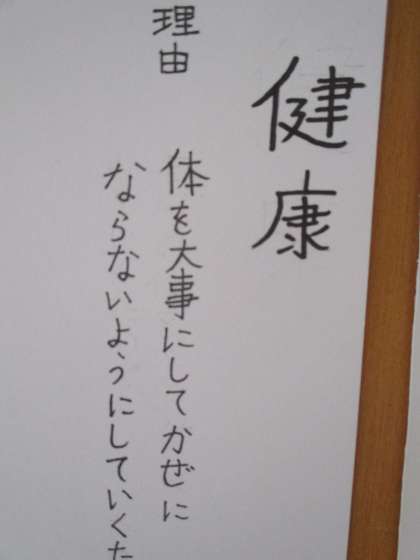 健康
理由
体を大事にしてかぜに
ならないようにしていくた